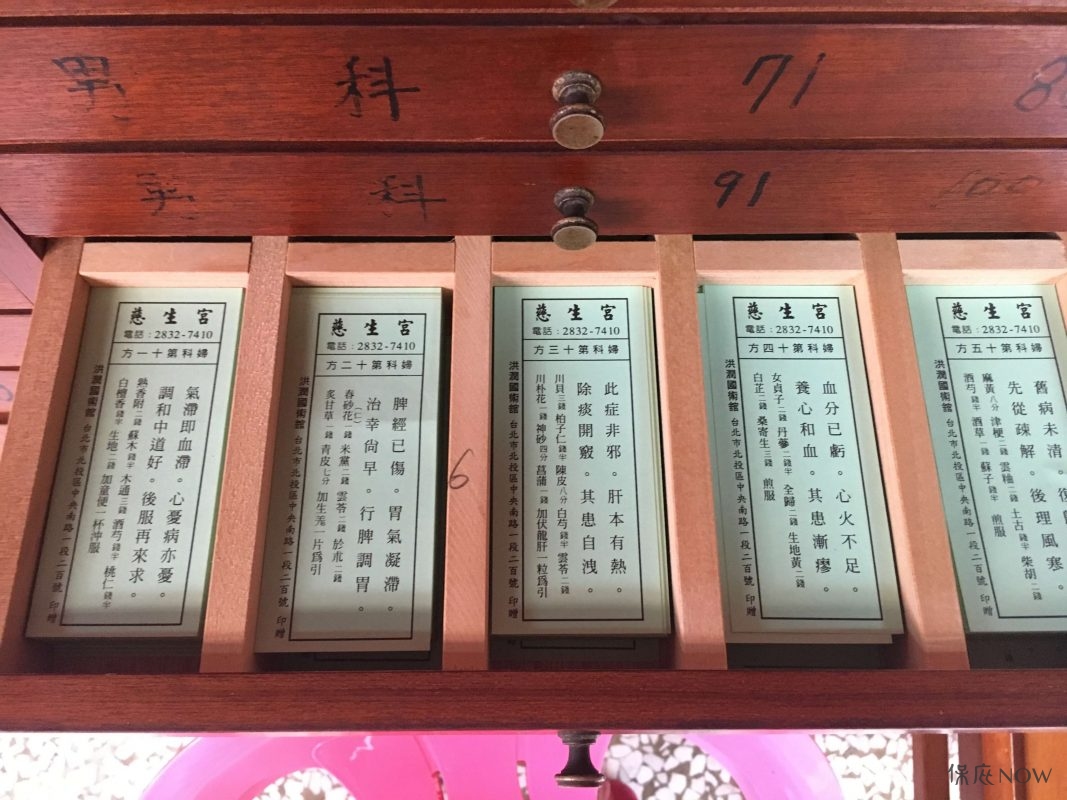 男 科 71
男 科 91 100
慈生宮
電話：2832-7410
婦科第十一方
氣滯即血滯。心憂病亦憂。
調和中道好。後服再來求。
熟香附二錢 蘇木錢半 木通三錢 酒芍錢半 桃仁錢半
白檀香錢半 生地二錢 加童便一杯沖服
洪濶國術館 台北市北投區中央南路一段二百號 印贈
慈生宮
電話：2832-7410
婦科第十二方
脾經已傷。胃氣凝滯。
治幸尚早。行脾調胃。
春砂花一錢 米黨二錢 雲苓二錢 於朮二錢
(仁)
炙甘草一錢 青皮七分 加生羗一片為引
洪濶國術館 台北市北投區中央南路一段二百號 印贈
6
慈生宮
電話：2832-7410
婦科第十三方
此症非邪。肝本有熱。
除痰開竅。其患自洩。
川貝三錢 柏子仁錢半 陳皮八分 白芍錢半 雲苓二錢
川朴花一錢 神砂四分 菖蒲一錢 加伏龍肝一粒為引
洪濶國術館 台北市北投區中央南路一段二百號 印贈
慈生宮
電話：2832-7410
婦科第十四方
血分已虧。心火不足。
養心和血。其患漸瘳。
女貞子二錢 丹蔘二錢半 全歸二錢 生地黃二錢
白芷二錢 桑寄生三錢 煎服
洪濶國術館 台北市北投區中央南路一段二百號 印贈
慈生宮
電話：2832-7410
婦科第十五方
舊病未清。復
先從疎解。後理風寒。
麻黃八分 津梗二錢 雲柚二錢 土古二錢半 柴胡二錢
酒芍二錢 酒草一錢 蘇子錢半 煎服
洪濶國術館 台北市北投區中央南路一段二百號 印贈
保庇NOW